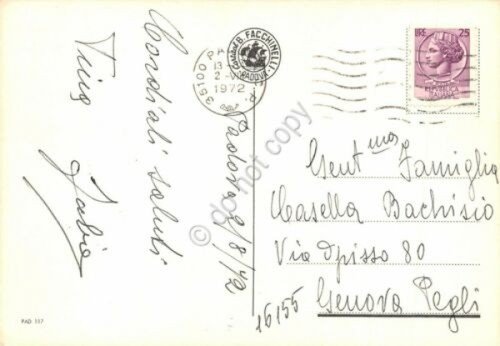 Padova 2/8/72
Cordiali saluti
Tino
Fabio
Gent.ma Famiglia
Casella Bachisio
Via Opisso 80
16155 Genova Pegli
LIRE 25
35100 PA
13
1972
B. FACCHINELLI
PADOVA
PAD 117
do not copy